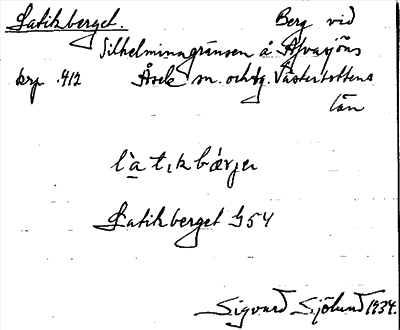 Latikberget. Berg vid
Vilhelminagränsen å Åsvasjöns
krp .412 Åsele sn. och tg. Västerbottens
län
l`a tık bǽrjer
Latikberget G54
Sigvard Sjölund 1934.